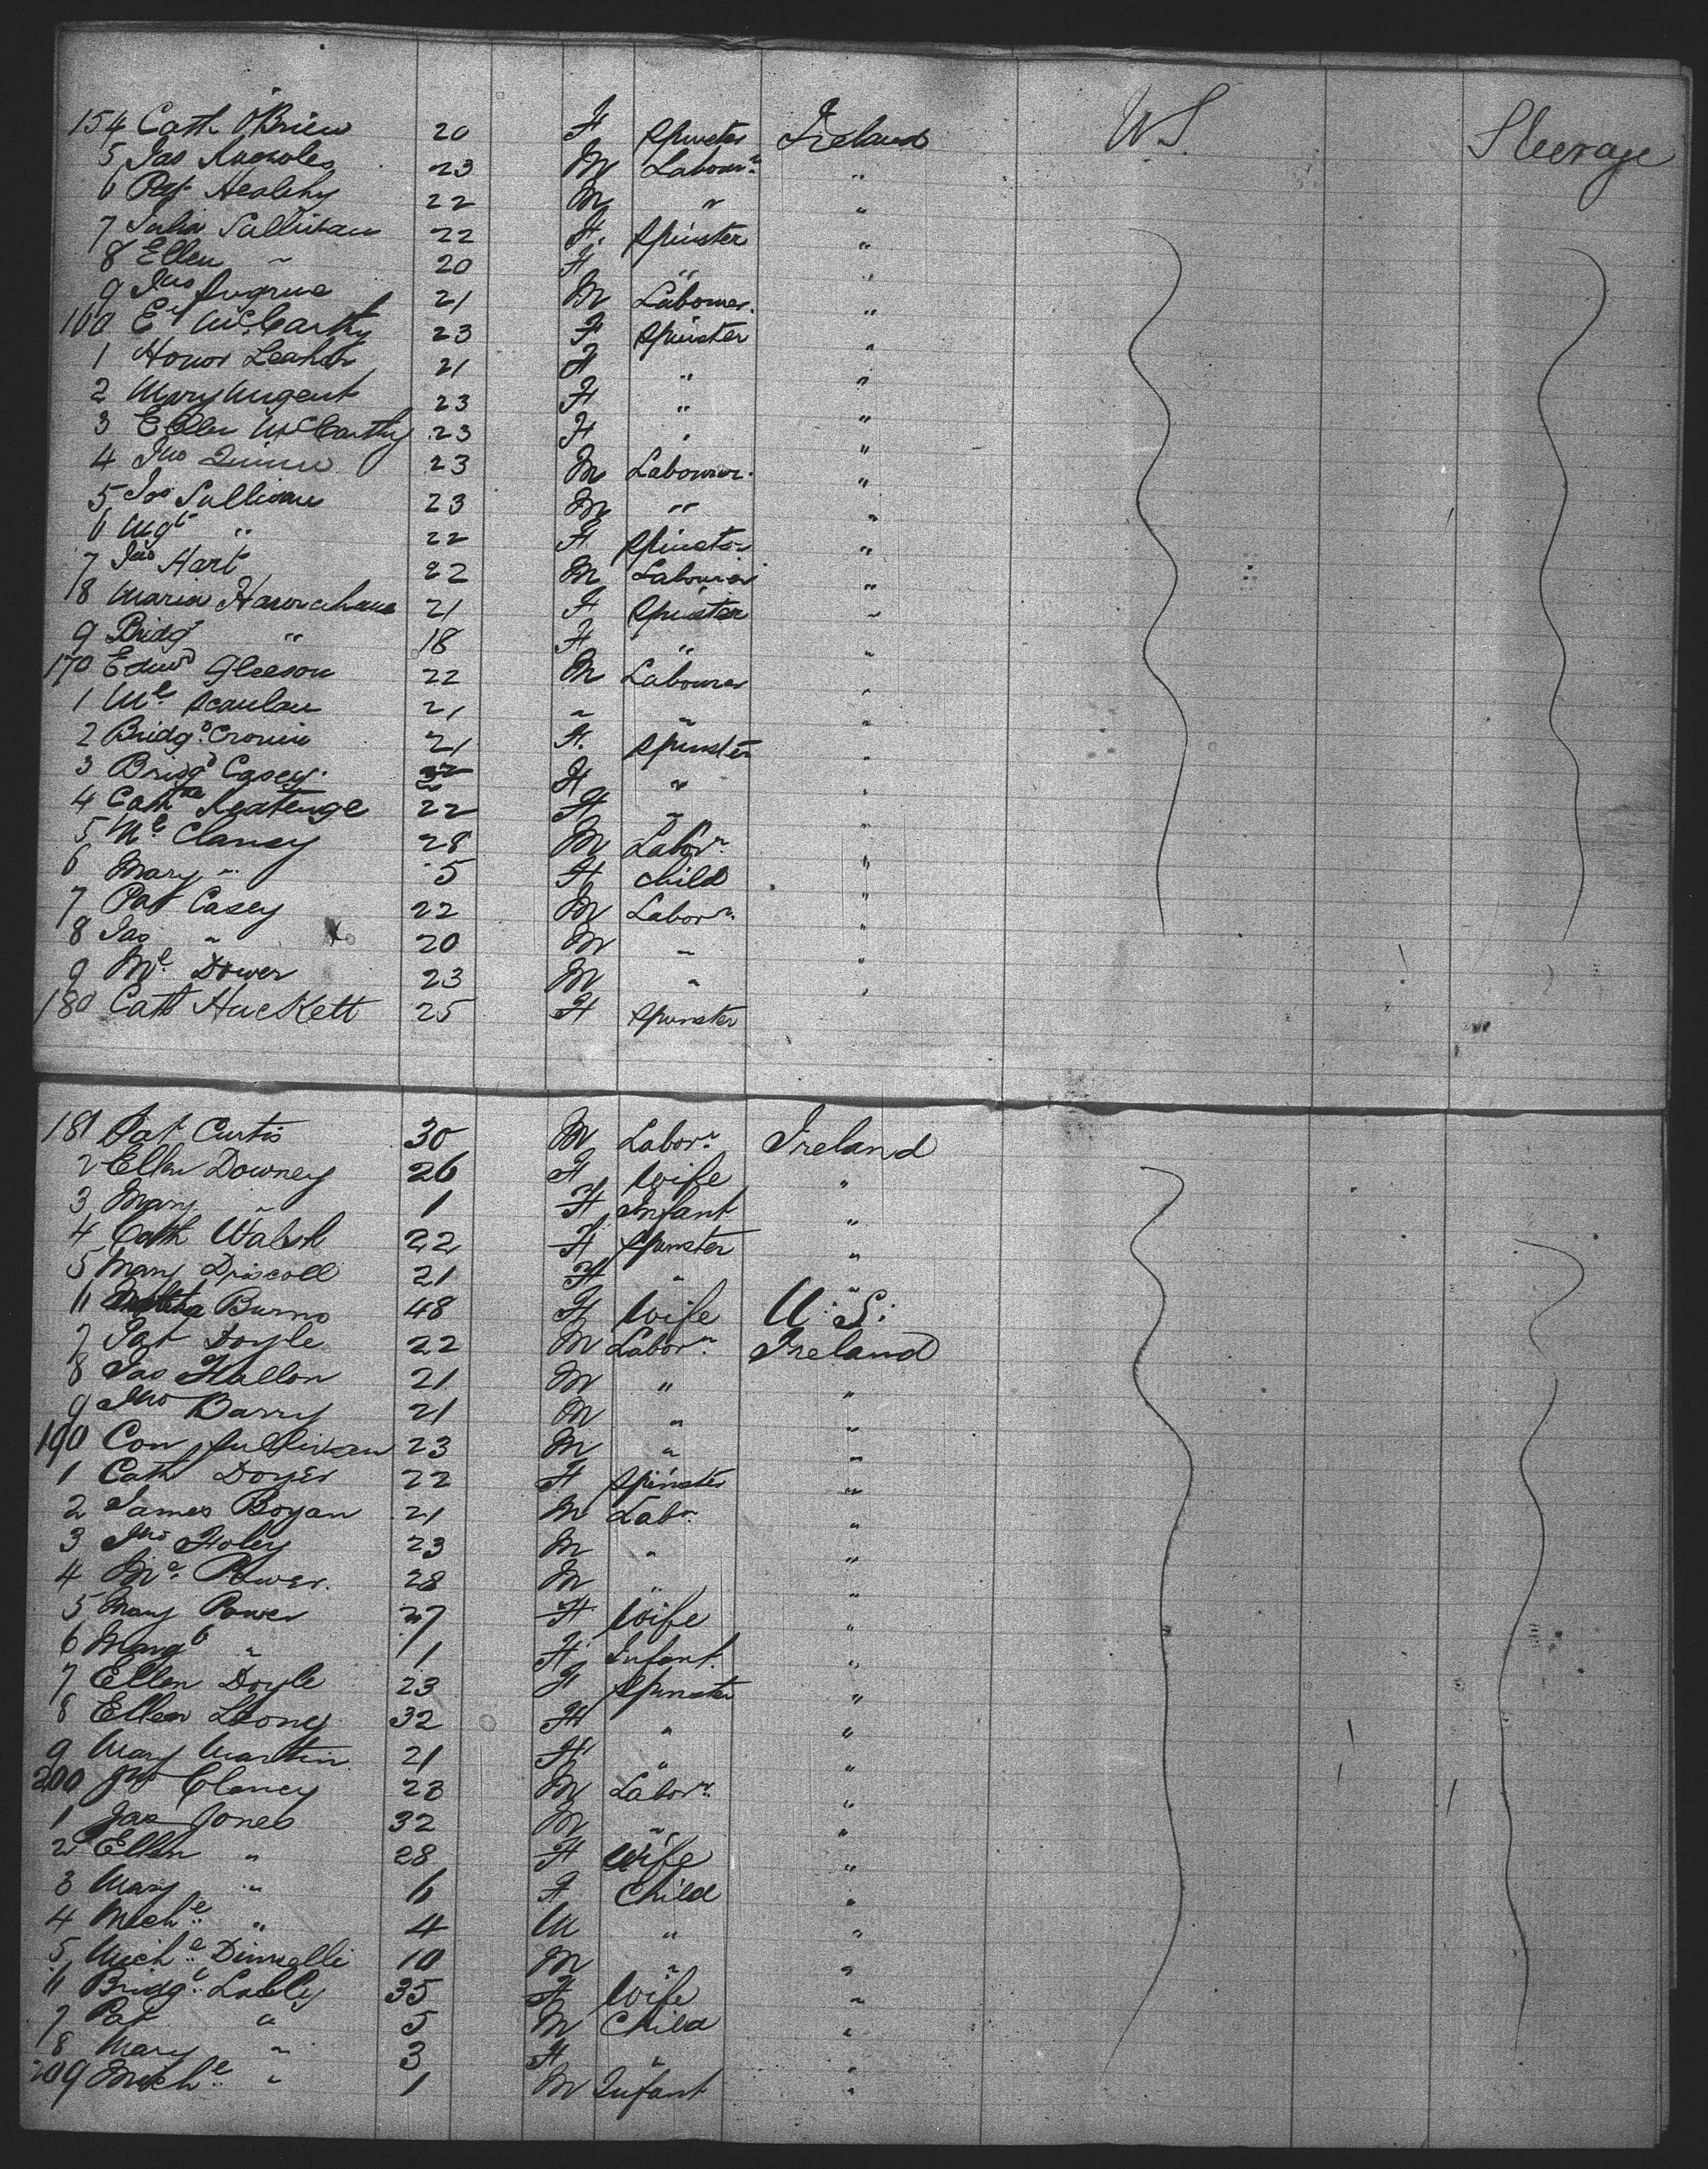 154 Cath O'Brien 20 F Spinster Ireland US Steerage
5 Jas 23 M Labourr "
6 Pat Healehy 22 M " "
7 Julia Sullivan 22 F. Spinster "
8 Ellen " 20 F " "
9 Jno Sugrue 21 M Labourer. "
160 McCarthy 23 F Spinster "
1 Honor Leahy 21 F " "
2 Mary Nugent 23 F " "
3 Ellen McCarthy 23 F " "
4 Jno Quinn 23 M Labourer. "
5 Jas Sullivan 23 M " "
6 Mgt " 22 F Spinster "
7 Jas Hart 22 M Labourer "
18 Maria Hanrahan 21 F Spinster "
9 Bridgt " 18 F " "
170 Edwd Gleeson 22 M Labourer "
1 Ml Scanlan 21 " " "
2 Bridgt Cronin 21 F. Spinster "
3 Bridgt Casey F " "
4 Cathne Keatinge 22 F " "
5 Ml Clancy 28 M Laborr "
6 Mary " 5 F Child "
7 Pat Casey 22 M Laborr "
8 Jas " 20 M " "
9 Ml Dower 23 M " "
180 Cath Huckett 25 F Spinster
181 Pat Curtis 30 M Laborr Ireland
2 Ellen Downey 26 F Wife "
3 Mary " 1 F Infant "
4 Cath Walsh 22 F Spinster "
5 Mary Driscoll 21 F " "
6 Burns 48 F Wife U.S.
7 Pat Doyle 22 M Laborr Ireland
8 Jas Fallon 21 M " "
9 Jno Barry 21 M " "
190 Con Sullivan 23 M " "
1 Cath Dwyer 22 F Spinster "
2 James Bogan 21 M Labr "
3 Jno Foley 23 M " "
4 Ml Power. 28 M " "
5 Mary Power 27 F Wife "
6 Margt " 1 F Infant "
7 Ellen Doyle 23 F Spinster "
8 Ellen Looney 32 F " "
9 Mary Martin 21 F " "
200 Clancy 23 M Laborr "
1 Jas Jones 32 M " "
2 Ellen " 28 F Wife "
3 Mary " 6 F Child "
4 Michl " 4 M " "
5 Michl 10 M " "
6 Bridgt 35 F Wife "
7 Pat " 5 M Child "
8 Mary " 3 F " "
209 Michl " 1 M Infant "